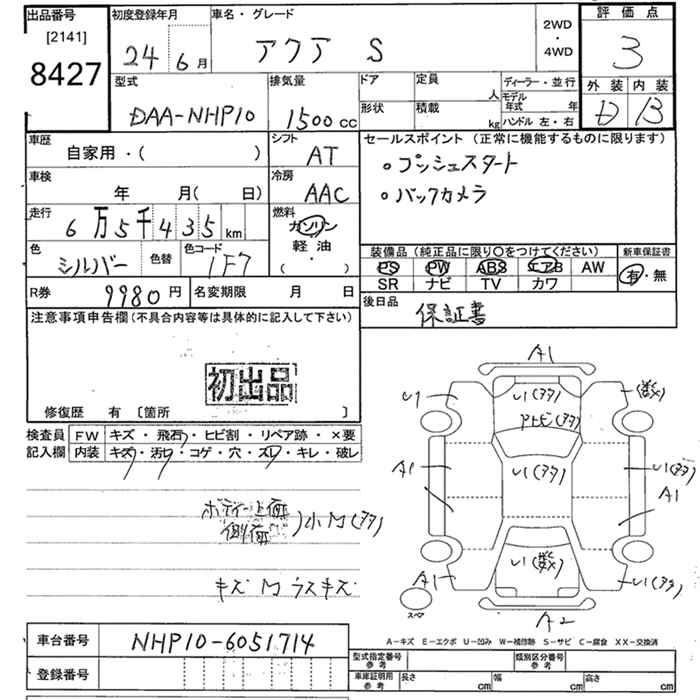 出品番号
[2141]
8427
初度登録年月
24 6月
車名・グレード
アクア S
2WD
・
4WD
評価点
3
外装 内装
D B
型式
DAA-NHP10
排気量
1500cc
ドア
形状
定員 人
積載 kg
ディーラー・並行
モデル年式 年
ハンドル 左・右
車歴
自家用・( )
シフト
AT
セールスポイント (正常に機能するものに限ります)
。プッシュスタート
。バックカメラ
車検
年 月( 日)
冷房
AAC
走行
6万5千435km
燃料
ガソリン
軽油
( ・ )
色
シルバー
色替
色コード
1F7
装備品(純正品に限り〇をつけてください)
PS PW ABS エアB AW
SR ナビ TV カワ
新車保証書
有・無
R券 9980円
名変期限 月 日
後日品
保証書
注意事項申告欄(不具合内容等は具体的に記入して下さい)
初出品
修復歴 有 [箇所 ]
検査員記入欄
FW キズ・飛石・ヒビ割・リペア跡・×要
内装 キズ・汚レ・コゲ・穴・スレ・キレ・破レ
ボディー上面
側面
小M(タタ)
キズ M ラスキズ
A1
U1
U1(タタ)
(数)
アトビ(タタ)
A1
U1(タタ)
U1(タタ)
A1
U1(数)
A1
U1(タタ)
スペア
A2
A-キズ E-エクボ U-凹み W-補修跡 S-サビ C-腐食 XX-交換済
車台番号
NHP10-6051714
登録番号
型式指定番号
参考
類別区分番号
参考
車庫証明用
参考
長さ cm
幅 cm
高さ cm